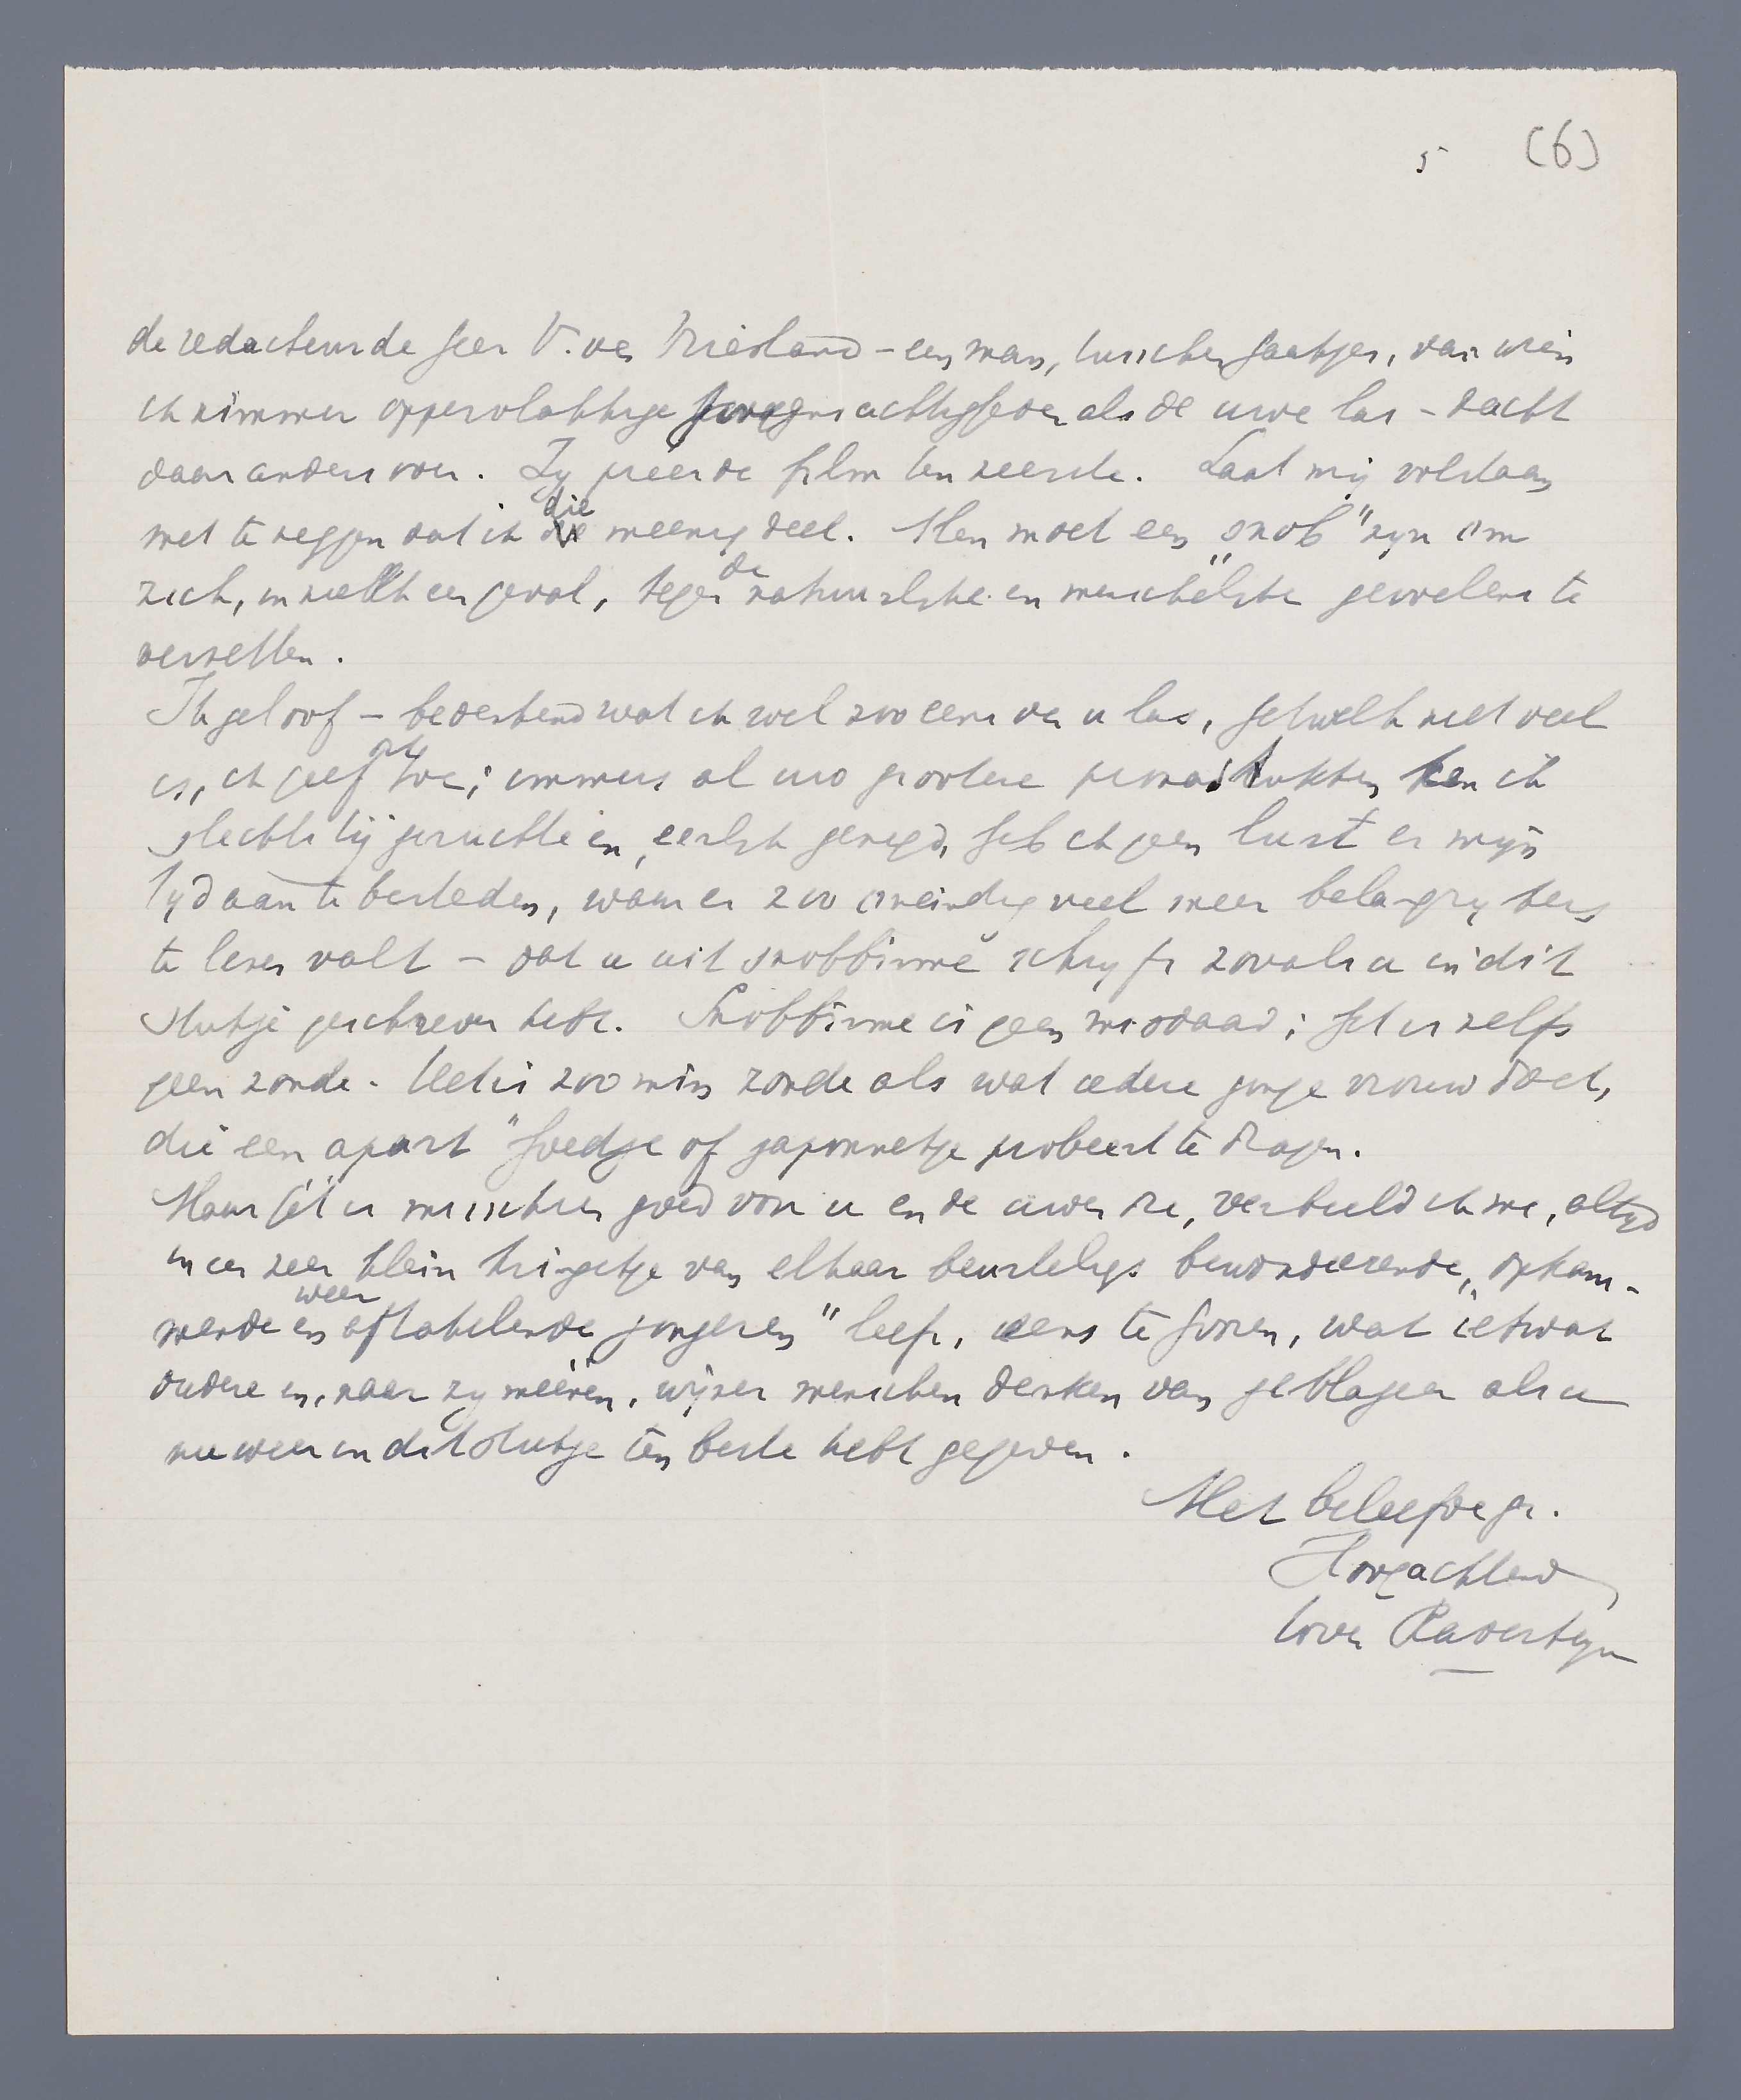 5 (6)
de redacteur de heer V. van Vriesland – een man, tusschen haakjes, van wien
ik nimmer oppervlakkige hoogmachtigheden als de uwe las – dacht
daar anders over. Zy prees de film ten zeerste. Laat mij volstaan
met te zeggen dat ik die meening deel. Men moet een „snob" zyn om
zich, in zulk een geval, tegen de natuurlyke en menschelyke gevoelens te
verzetten.
Ik geloof – bedenkend wat ik wel zoo eens van u las, hetwelk niet veel
is, ik geef het toe; immers al uw grootere pennastukken ken ik
slechts bij geruchte en, eerlyk gezegd, heb ik geen lust er mijn
tyd aan te besteden, waar er zoo oneindig veel meer belangrykers
te lezen valt – dat u uit snobbisme schryft zooals u in dit
stukje geschreven hebt. Snobbisme is geen misdaad; het is zelfs
geen zonde. Het is zoo min zonde als wat iedere jonge vrouw doet,
die een apart hoedje of japonnetje probeert te dragen.
Maar het is misschien goed voor u en de uwen die, verbeeld ik me, altyd
in een zeer klein kringetje van elkaar beurtelings bewonderende, „opkam-
mende en weer aftakelende jongeren" leeft, eens te hooren, wat ietwat
oudere en, naar zy meenen, wijzer menschen denken van geblageer als u
nu weer in dit stukje ten beste hebt gegeven.
Met beleefde gr.
Hoogachtend
W van Ravesteyn